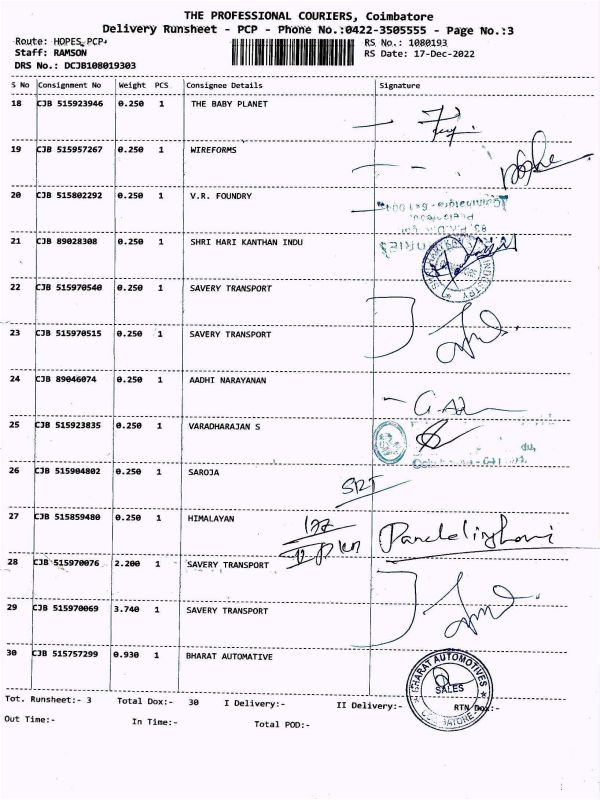 THE PROFESSIONAL COURIERS, Coimbatore
Delivery Runsheet - PCP - Phone No.:0422-3505555 - Page No.:3
Route: HOPES PCP RS No.: 1080193
Staff: RAMSON RS Date: 17-Dec-2022
DRS No.: DCJB108019303
S No Consignment No Weight PCS Consignee Details Signature
18 CJB 515923946 0.250 1 THE BABY PLANET
19 CJB 515957267 0.250 1 WIREFORMS
20 CJB 515802292 0.250 1 V.R. FOUNDRY
21 CJB 89028308 0.250 1 SHRI HARI KANTHAN INDU
22 CJB 515970540 0.250 1 SAVERY TRANSPORT
23 CJB 515970515 0.250 1 SAVERY TRANSPORT
24 CJB 89046074 0.250 1 AADHI NARAYANAN
25 CJB 515923835 0.250 1 VARADHARAJAN S
26 CJB 515904802 0.250 1 SAROJA
SRT
27 CJB 515859480 0.250 1 HIMALAYAN
28 CJB 515970076 2.200 1 SAVERY TRANSPORT
29 CJB 515970069 3.740 1 SAVERY TRANSPORT
30 CJB 515757299 0.930 1 BHARAT AUTOMATIVE
BHARAT AUTOMOTIVES
SALES
COIMBATORE
Tot. Runsheet:- 3 Total Dox:- 30 I Delivery:- II Delivery:- RTN Dox:-
Out Time:- In Time:- Total POD:-